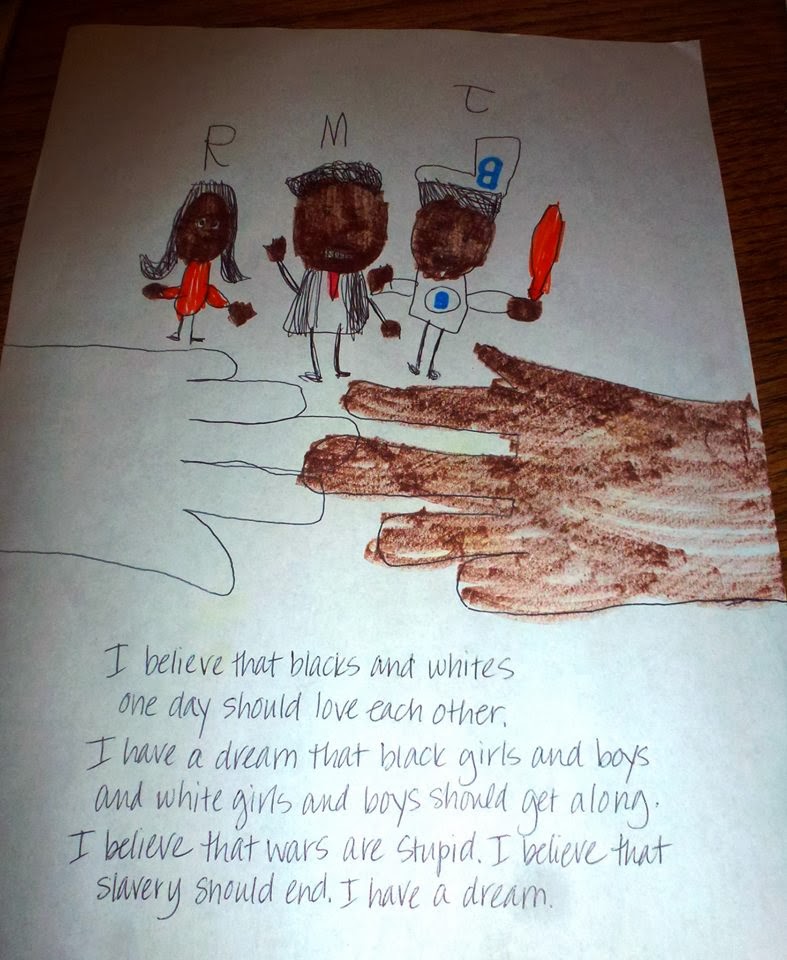 R M J
B
B
I believe that blacks and whites
one day should love each other.
I have a dream that black girls and boys
and white girls and boys should get along.
I believe that wars are stupid. I believe that
slavery should end. I have a dream.